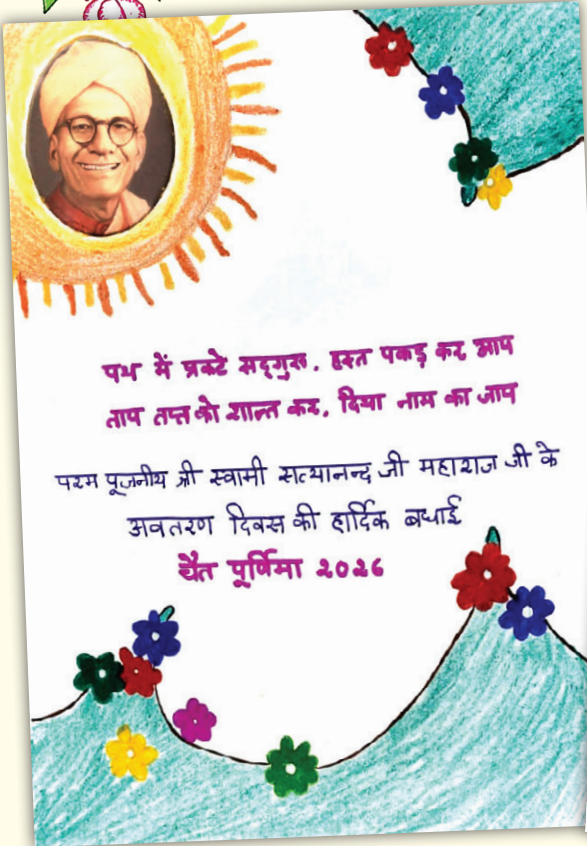 पथ में प्रकटे सद्गुरु, हस्त पकड़ कर आप
ताप तप्त को शान्त कर, दिया नाम का जाप
परम पूजनीय श्री स्वामी सत्यानन्द जी महाराज जी के
अवतरण दिवस की हार्दिक बधाई
चैत पूर्णिमा २०२६